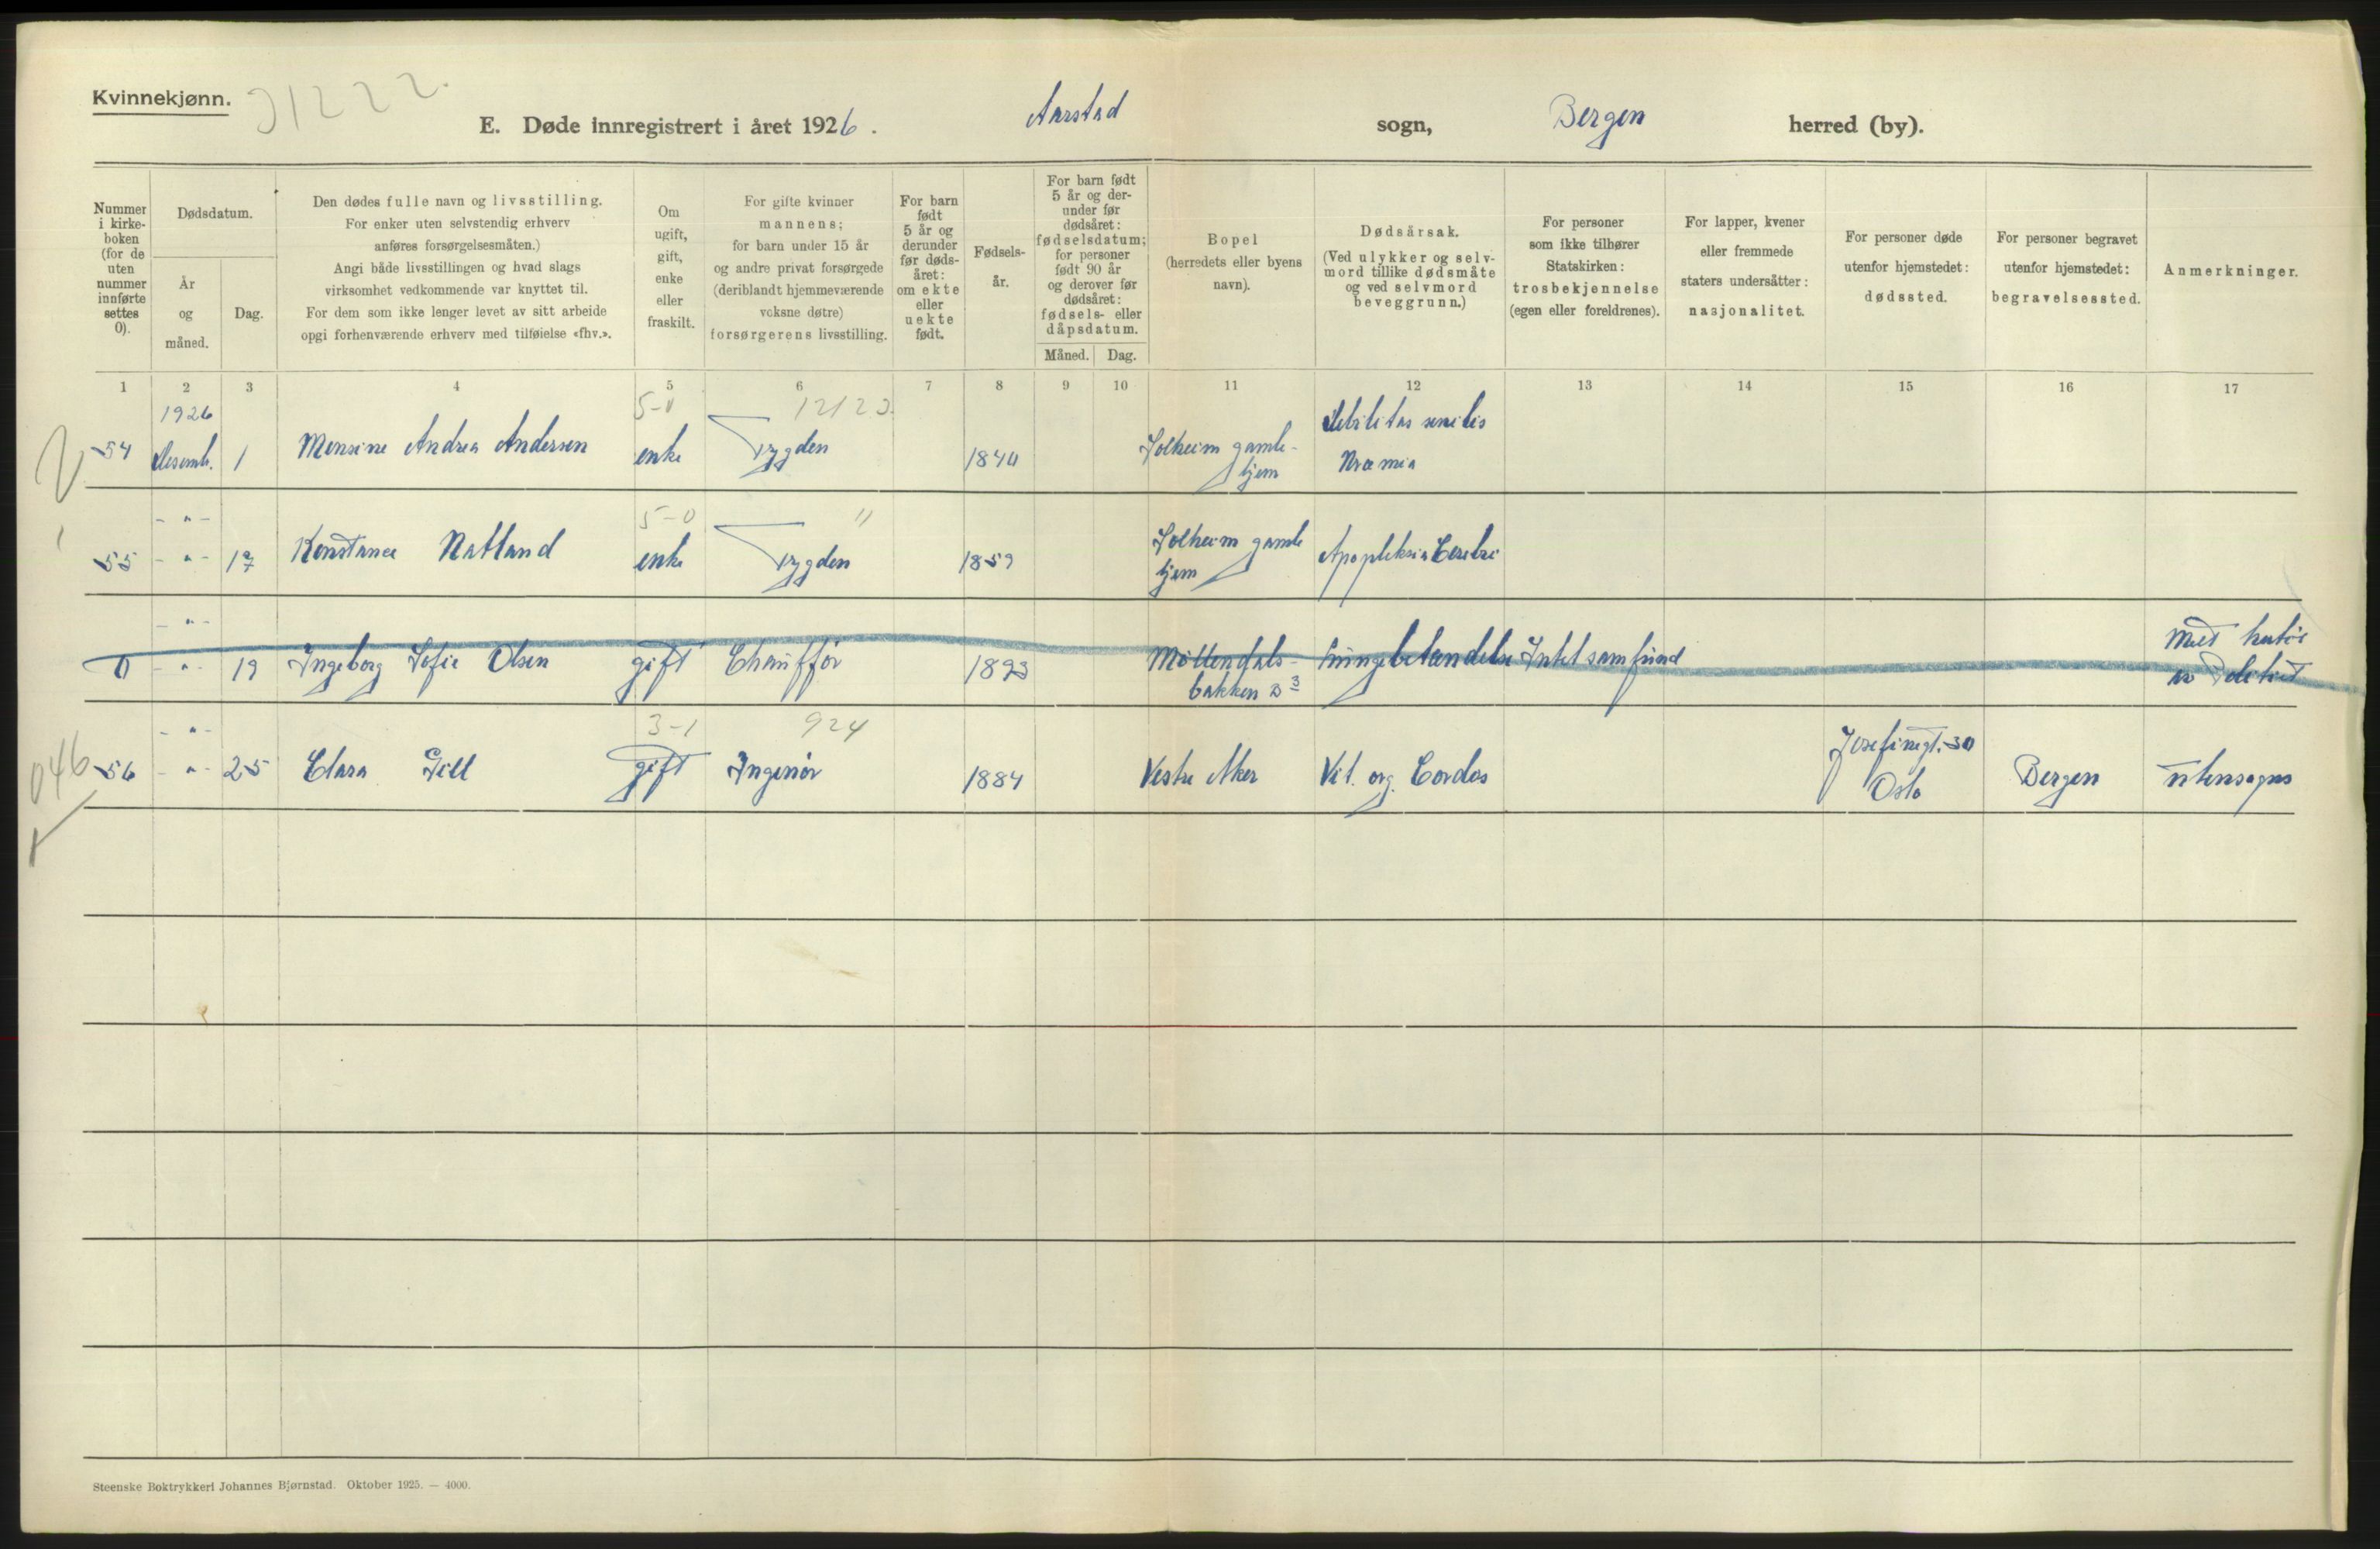 Kvinnekjønn.
21222.
E. Døde innregistrert i året 1926. Aarstad sogn, Bergen herred (by).
Nummer i kirke-boken (for de uten nummer innførte settes 0).
Dødsdatum.
År og måned.
Dag.
Den dødes fulle navn og livsstilling.
For enker uten selvstendig erhverv
anføres forsørgelsesmåten.)
Angi både livsstillingen og hvad slags
virksomhet vedkommende var knyttet til.
For dem som ikke lenger levet av sitt arbeide
opgi forhenværende erhverv med tilføielse «fhv.».
Om
ugift,
gift,
enke
eller
fraskilt.
For gifte kvinner
mannens;
for barn under 15 år
og andre privat forsørgede
(deriblandt hjemmeværende
voksne døtre)
forsørgerens livsstilling.
For barn
født
5 år og
derunder
før døds-
året:
om ekte
eller
uekte
født.
Fødsels-
år.
For barn født
5 år og der-
under før
dødsåret:
fødselsdatum;
for personer
født 90 år
og derover før
dødsåret:
fødsels- eller
dåpsdatum.
Måned. Dag.
Bopel
(herredets eller byens
navn).
Dødsårsak.
(Ved ulykker og selv-
mord tillike dødsmåte
og ved selvmord
beveggrunn.)
For personer
som ikke tilhører
Statskirken:
trosbekjennelse
(egen eller foreldrenes).
For lapper, kvener
eller fremmede
staters undersåtter:
nasjonalitet.
For personer døde
utenfor hjemstedet:
dødssted.
For personer begravet
utenfor hjemstedet:
begravelsessted.
Anmerkninger.
1 2 3 4 5 6 7 8 9 10 11 12 13 14 15 16 17
1926 5-0 12123
54 Desemb. 1 Monsine Andrea Andersen enke Trygden 1840 Solheim gamle-
hjem Debilitas senilis
Uræmia
- " - 5-0 "
55 - " - 17 Konstance Natland enke Trygden 1859 Solheim gamle
hjem Apopleksia Cerebri
- " -
0 - " - 19 Ingeborg Sofie Olsen gift Chauffør 1893 Møllendals-
bakken 23 lungebetændelse Intet samfund
av Politiet
- " - 3-1 924
56 - " - 25 Clara Gill gift Ingeniør 1884 Vestre Aker Vit. org. Cordos Josefinegt. 30
Oslo Bergen utensogns
046
Steenske Boktrykkeri Johannes Bjørnstad. Oktober 1925. — 4000.